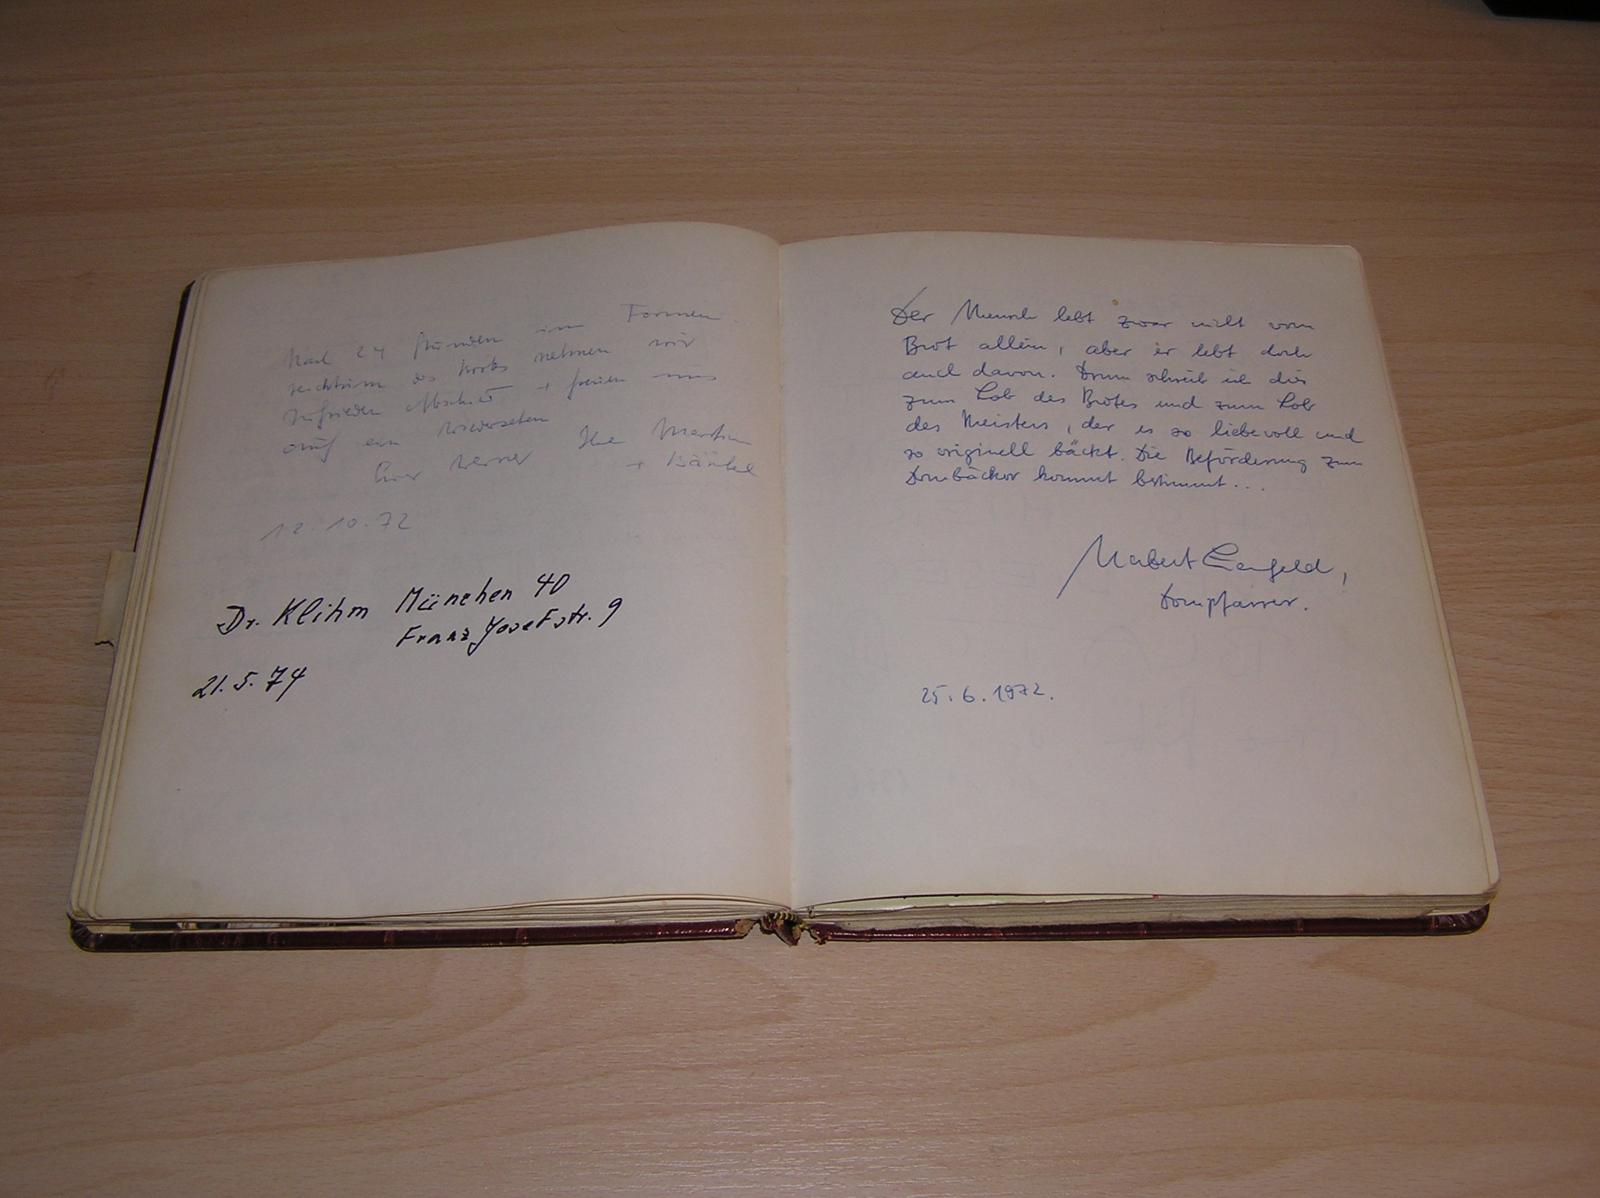 Nach 24 Stunden im Formen
reichtum des Korbs nehmen wir
zufrieden Abschied + freuen uns
auf ein Wiedersehen
Euer Werner Ilse Martin
+ Bärbel
12.10.72
Dr. Klihm München 40
Franz Josefstr. 9
21.5.74
Der Mensch lebt zwar nicht vom
Brot allein, aber er lebt doch
auch davon. Drum schreib ich dies
zum Lob des Brotes und zum Lob
des Meisters, der es so liebevoll und
so originell bäckt. Die Beförderung zum
Dombäcker kommt bestimmt...
Dompfarrer.
25.6.1972.